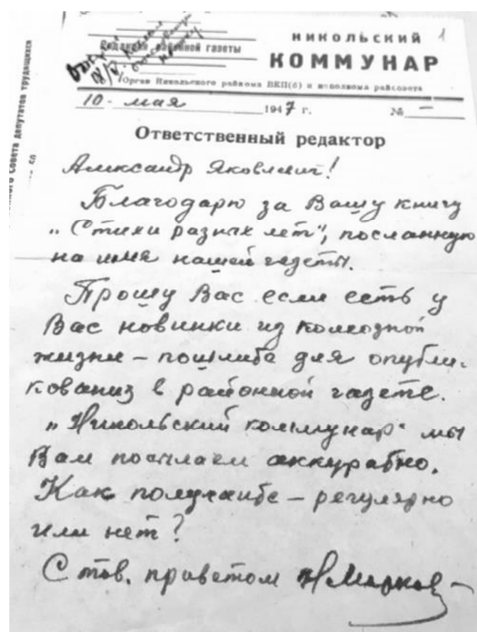 НИКОЛЬСКИЙ 1
Редакция районной газеты
КОММУНАР
Орган Никольского райкома ВКП(б) и исполкома райсовета
10 - мая 1947 г. № —
Ответственный редактор
Александр Яковлевич!
Благодарю за Вашу книгу
„Стихи разных лет", посланную
на имя нашей газеты.
Прошу Вас если есть у
Вас новинки из колхозной
жизни – пошлите для опубли-
кования в районной газете.
„Никольский коммунар" мы
Вам посылаем аккуратно.
Как получаете – регулярно
или нет?
С тов. приветом Н Марков
ного Совета депутатов трудящихся